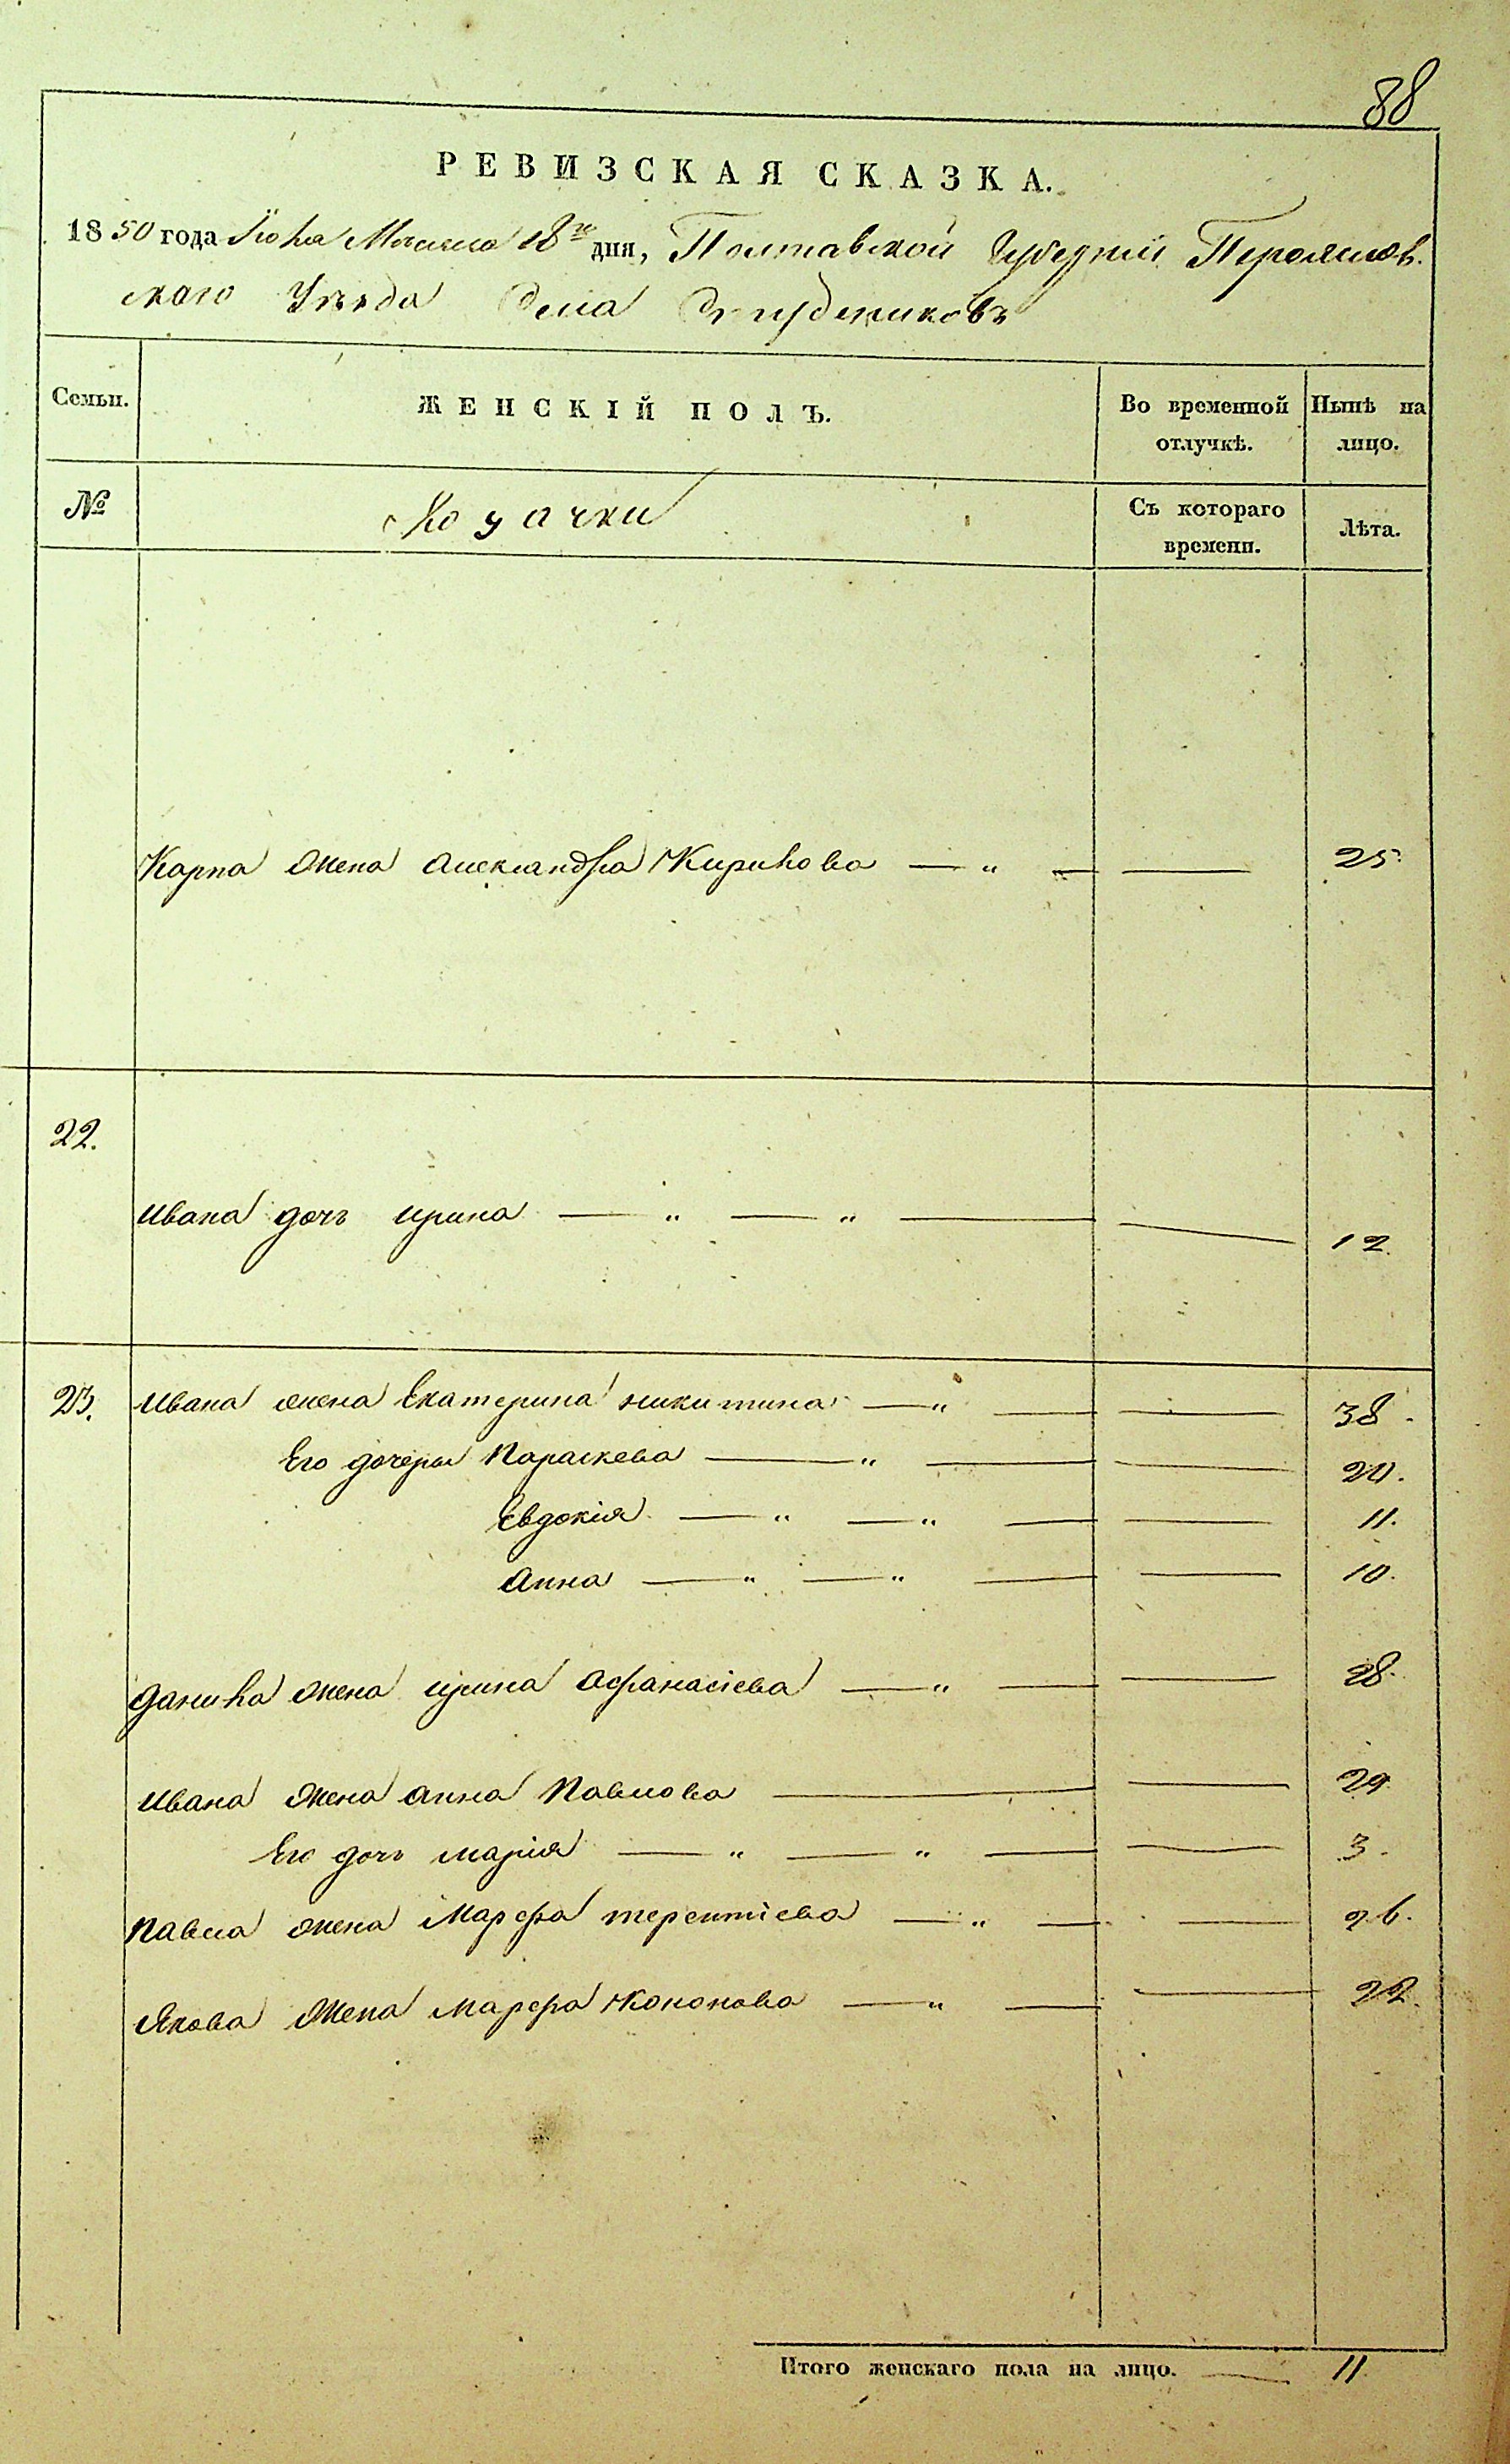 88
РЕВИЗСКАЯ СКАЗКА.
1850 года Іюля Месяца 18го дня, Полтавской Губерніи Пероясловскаго Уезда Села
Семьи.
ЖЕНСКІЙ ПОЛЪ.
Во временной отлучкѣ.
Нынѣ на лицо.
№
Козачки
Съ котораго времени.
Лѣта.
Карпа жена Александра Кирилова — „ — — 25.
22.
Ивана дочь Ирина — „ — „ — — 12.
23. Ивана жена Екатерина Никитина — „ — — 38.
Его дочеры Параскева — „ — — 20.
Евдокія — „ — „ — — 11.
Анна — „ — „ — — 10.
Данила жена Ирина Афанасіева — „ — — 28.
Ивана жена Анна Павлова — — 29.
Его дочь Марія — „ — „ — — 3.
Павла жена Марфа Терентіева — „ — — 26.
Якова жена Марфа Кононова — „ — — 22.
Итого женскаго пола на лицо. — 11